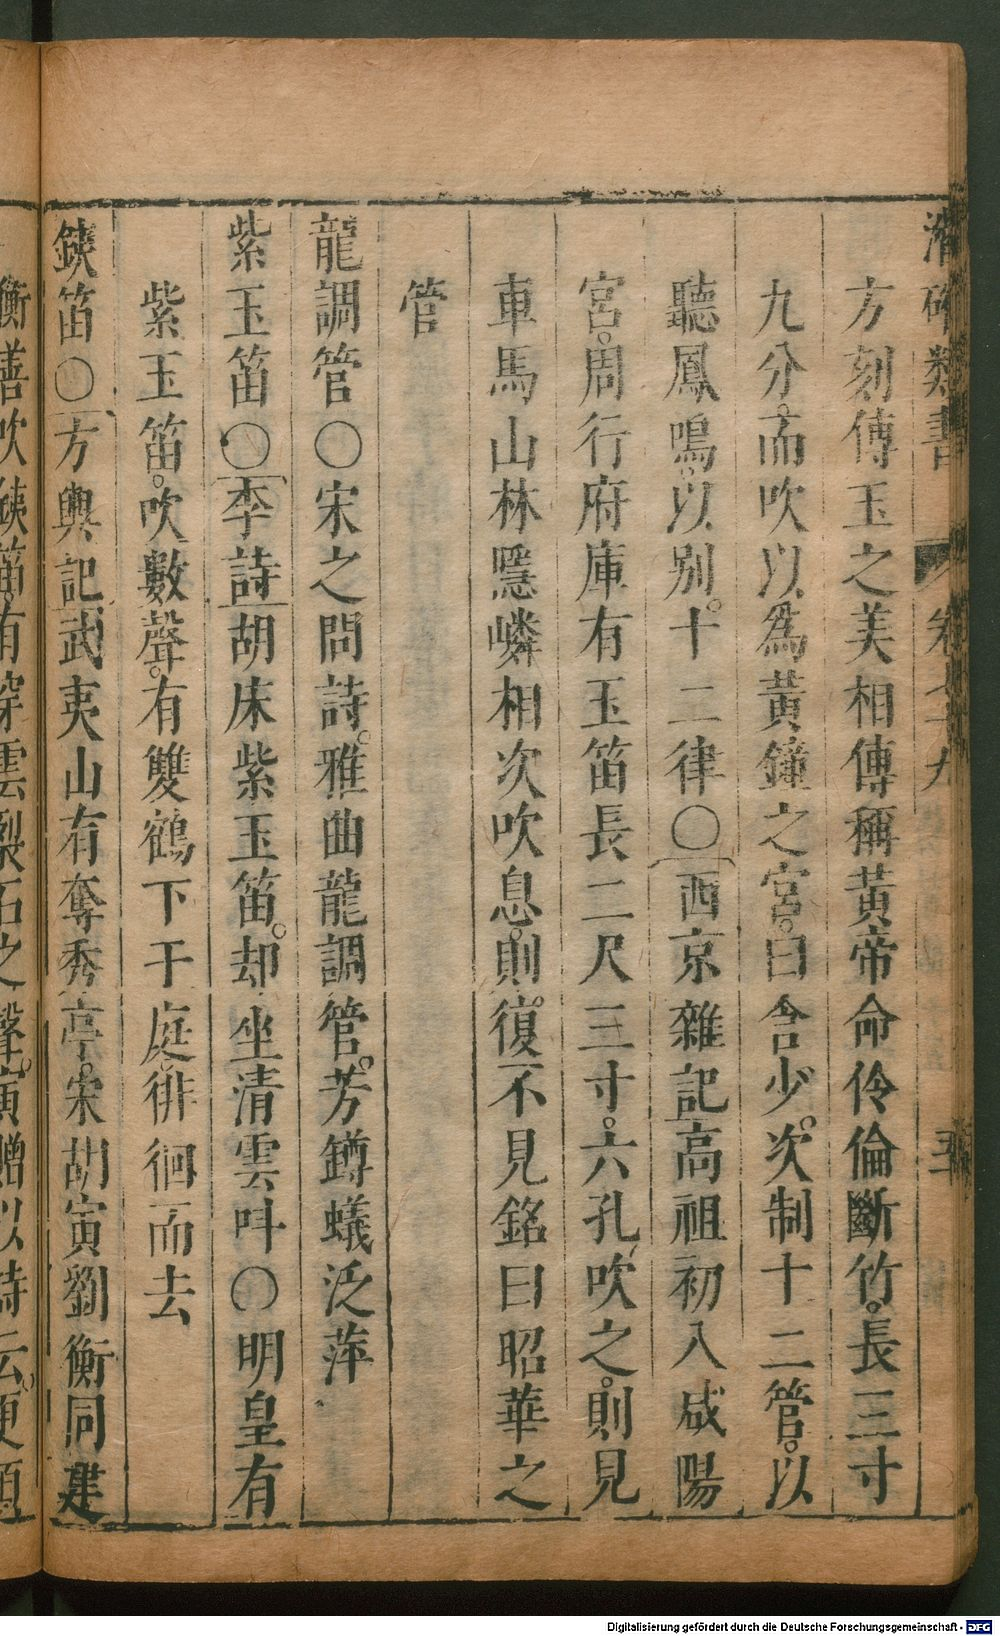 潛確類書 卷九十九 五
方刻傳玉之美相傳稱黃帝命伶倫斷竹。長三寸
九分。而吹以爲黃鐘之宮。曰含少。次制十二管。以
聽鳳鳴。以別。十二律○西京雜記高祖初入咸陽
宮。周行府庫有玉笛長二尺三寸。六孔、吹之。則見
車馬山林隱嶙相次吹息。則。復不見銘曰昭華之
管
龍調管○宋之問詩。雅曲龍調管。芳罇蟻泛萍
紫玉笛○李詩胡床紫玉笛。却坐清雲呌○明皇有
紫玉笛。吹數聲。有雙鶴下于庭。徘徊而去
鉄笛○方輿記武夷山有奪秀亭。宋胡寅劉衡同建
衡善吹鉄笛有穿雲裂石之聲。寅贈以詩云。更煩
Digitalisierung gefördert durch die Deutsche Forschungsgemeinschaft - DFG